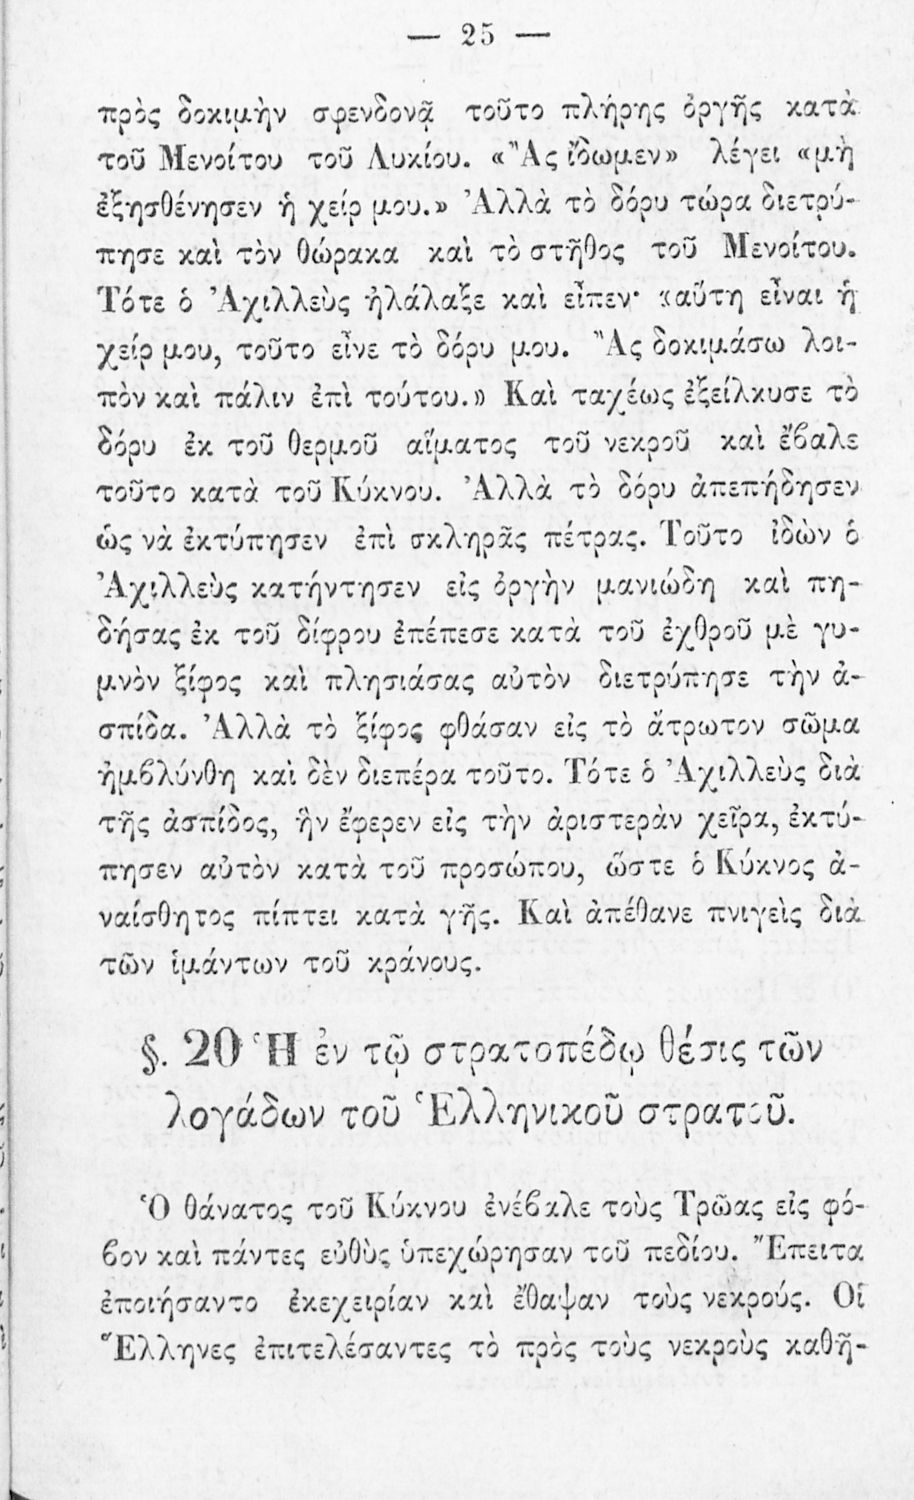 — 25 —
πρὸς δοκιμὴν σφενδονᾷ τοῦτο πλήρης ὀργῆς κατὰ
τοῦ Μενοίτου τοῦ Λυκίου. «Ἂς ἴδωμεν» λέγει «μὴ
ἐξησθένησεν ἡ χείρ μου.» Ἀλλὰ τὸ δόρυ τώρα διετρύ-
πησε καὶ τὸν θώρακα καὶ τὸ στῆθος τοῦ Μενοίτου.
Τότε ὁ Ἀχιλλεὺς ἠλάλαξε καὶ εἶπεν· «αὕτη εἶναι ἡ
χείρ μου, τοῦτο εἶνε τὸ δόρυ μου. Ἂς δοκιμάσω λοι-
πὸν καὶ πάλιν ἐπὶ τούτου.» Καὶ ταχέως ἐξείλκυσε τὸ
δόρυ ἐκ τοῦ θερμοῦ αἵματος τοῦ νεκροῦ καὶ ἔβαλε
τοῦτο κατὰ τοῦ Κύκνου. Ἀλλὰ τὸ δόρυ ἀπεπήδησεν
ὡς νὰ ἐκτύπησεν ἐπὶ σκληρᾶς πέτρας. Τοῦτο ἰδὼν ὁ
Ἀχιλλεὺς κατήντησεν εἰς ὀργὴν μανιώδη καὶ πη-
δήσας ἐκ τοῦ δίφρου ἐπέπεσε κατὰ τοῦ ἐχθροῦ μὲ γυ-
μνὸν ξίφος καὶ πλησιάσας αὐτὸν διετρύπησε τὴν ἀ-
σπίδα. Ἀλλὰ τὸ ξίφος φθάσαν εἰς τὸ ἄτρωτον σῶμα
ἠμβλύνθη καὶ δὲν διεπέρα τοῦτο. Τότε ὁ Ἀχιλλεὺς διὰ
τῆς ἀσπίδος, ἣν ἔφερεν εἰς τὴν ἀριστερὰν χεῖρα, ἐκτύ-
πησεν αὐτὸν κατὰ τοῦ προσώπου, ὥστε ὁ Κύκνος ἀ-
ναίσθητος πίπτει κατὰ γῆς. Καὶ ἀπέθανε πνιγεὶς διὰ
τῶν ἱμάντων τοῦ κράνους.
§. 20 Ἡ ἐν τῷ στρατοπέδῳ θέσις τῶν
λογάδων τοῦ Ἑλληνικοῦ στρατοῦ.
Ὁ θάνατος τοῦ Κύκνου ἐνέβαλε τοὺς Τρῶας εἰς φό-
βον καὶ πάντες εὐθὺς ὑπεχώρησαν τοῦ πεδίου. Ἔπειτα
ἐποιήσαντο ἐκεχειρίαν καὶ ἔθαψαν τοὺς νεκρούς. Οἱ
Ἕλληνες ἐπιτελέσαντες τὸ πρὸς τοὺς νεκροὺς καθῆ-